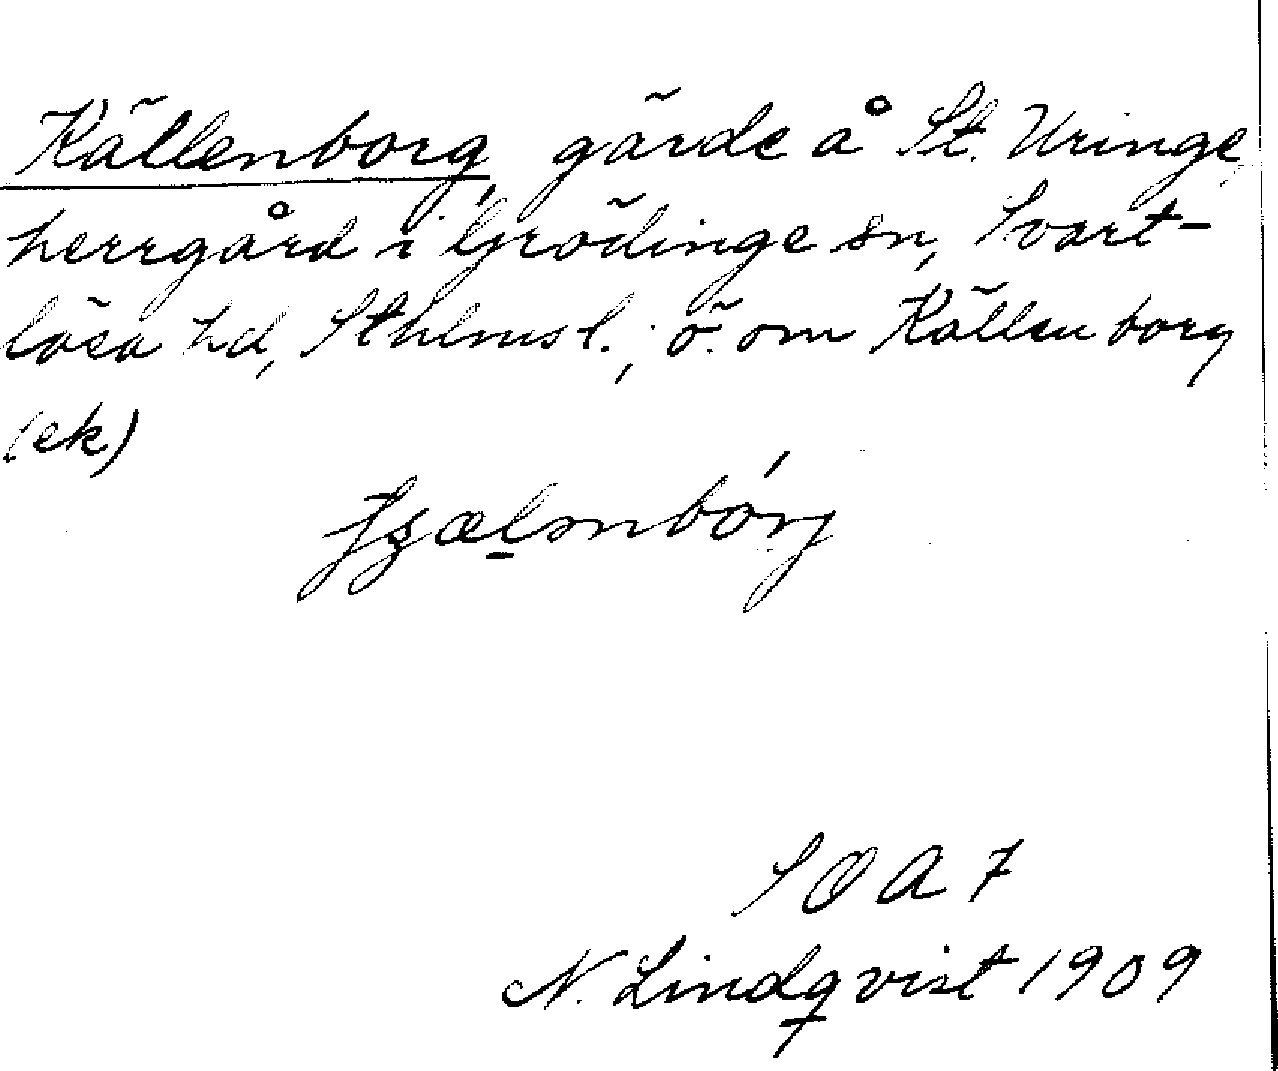 Källenborg, gärde å St. Uringe,
herrgård i Grödinge sn, Svart-
lösa hd, Sthlms l.; ö. om Källenborg
(ek)
SOA 7
N. Lindqvist 1909